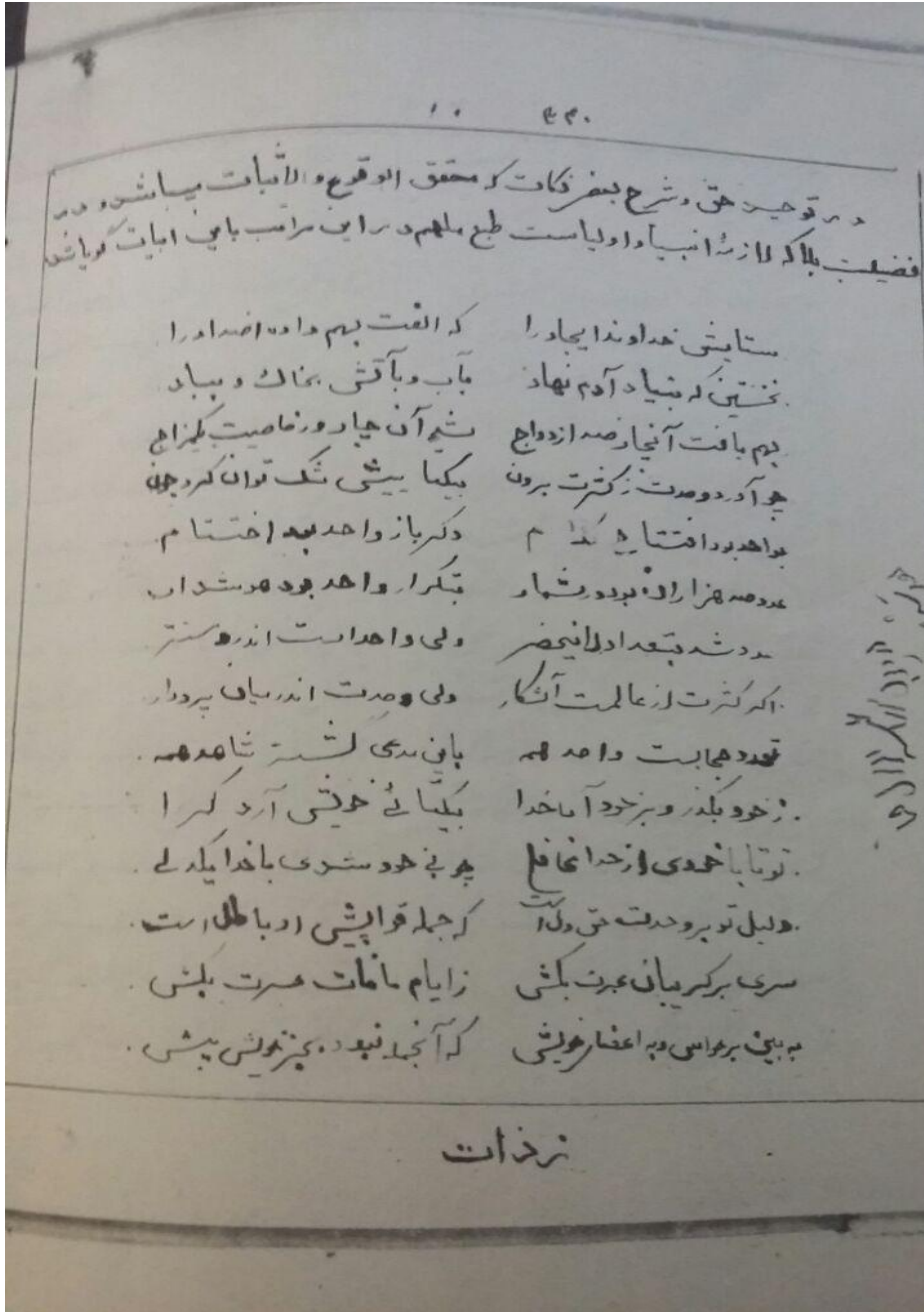 ۳۳۰ ۱۰
در توحید حق و شرح بعضی نکات که محقق الوقوع و الاثبات میباشد و در
فضیلت بلا که لازمهٔ انبیا و اولیاست طبع ملهم در این مراتب باین ابیات گویا شد
ستایش خداوند ایجاد را که الفت بهم داده اضداد را
نخستین که بنیاد آدم نهاد بآب و بآتش بخاک و بباد
بهم یافت آنچار ضد ازدواج شد آن چار در خاصیت یکمزاج
چو آورد وحدت ز کثرت برون بیکتاییش شک توان کرد چون
بواحد بود افتتاح دگر باز واحد بود اختتام
عدد صد هزاران بود در شمار بتکرار واحد بود
عدد شد بتعداد ولی واحد است اندرو مستتر
اگر کثرت از عالمت آشکار ولی وحدت اندر میان پرده‌دار
تعدد حجابست واحد همه باین مدعی گشته شاهد همه
ز خود بگذر و بر خود آ با خدا بیکتائی خویش آرد گرا
تو تا با خودی از خدا غافلی چو بی خود شوی با خدا یکدلی
دلیل تو بر وحدت حق دل است که جمله قوا پیش او باطل است
سری بر گریبان عبرت بکش ز ایام مافات حسرت بکش
به بین بر حواس و به اعضای خویش که آنجمله نبود بجز خویش بیش